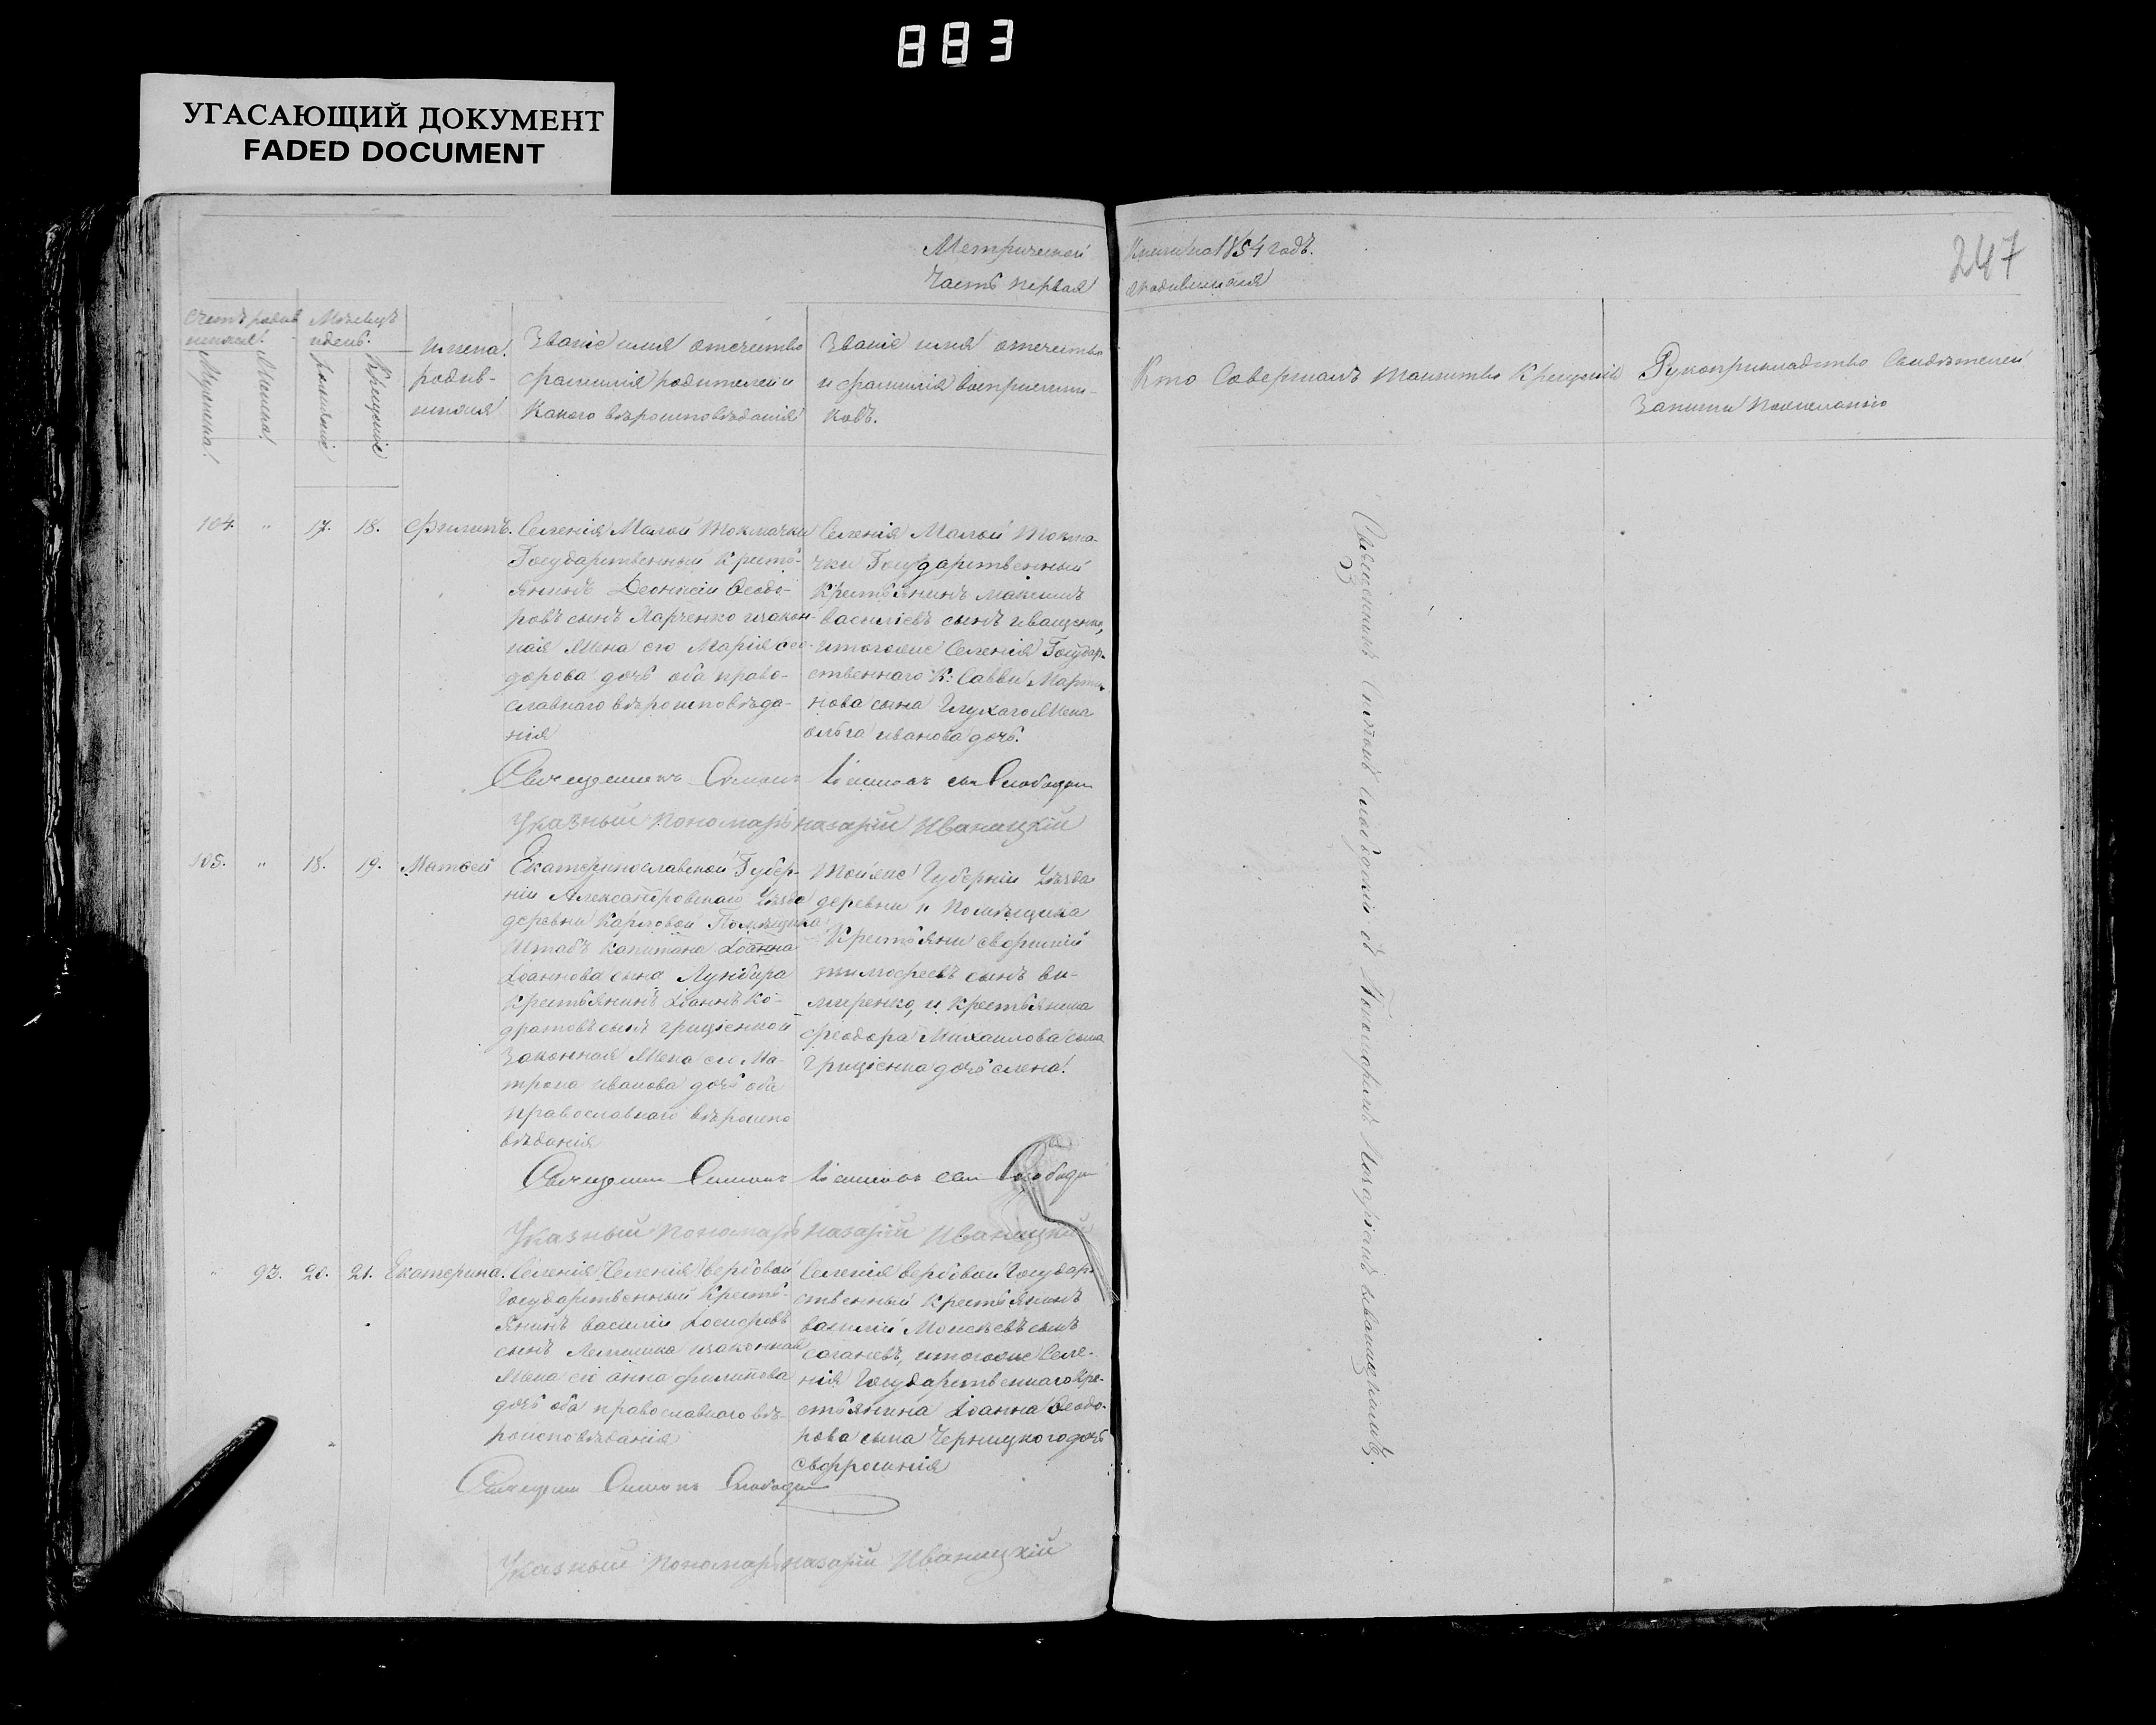 883
УГАСАЮЩИЙ ДОКУМЕНТ
FADED DOCUMENT
247
Метрической Книги на 1854 годъ.
Часть первая о родившихся
Счетъ родив
шихся!
Мужеска!
Женска!
Мѣсяцъ
и день.
рожденіе
Крещеніе
Имена!
родив-
шихся
Званіе имя отечество
фамилія родителей и
Какого вѣроисповѣданія
Званіе имя отечество
и фамилія воспріемни-
ковъ.
Кто Совершалъ таинство Крещенія
Рукоприкладство Свидѣтелей
Записи по желанію
104. " 17. 18. Филипъ.
Селенія Малой Токмачки
Государственный Кресть-
янинъ Діонисій Ѳеодо-
ровъ сынъ Харченко и закон-
ная жена его Марія Ѳео-
дорова дочь оба право-
славнаго вѣроисповѣда-
нія
Селенія Малой Токма-
чки Государственный
Крестьянинъ Максимъ
Василіевъ сынъ Иващенко,
и тогоже Селенія Государ-
ственнаго К: Саввы Марти-
нова сына Глухаго Жена
Ольга Иванова дочь.
Священникъ Симонъ
Указный Пономарь Назарій Иваницкій
105. " 18. 19. Матѳей
Екатеринославской Губер-
ніи Александровскаго Уѣзда
деревни Карловой Помѣщика
Штабъ Капитана Іоанна
Іоаннова сына
Крестьянинъ Іоаннъ Ко-
дратовъ сынъ Грицієнко и
Законная Жена его Ма-
трона Иванова дочь оба
православнаго вѣроиспо
вѣданія
Тойже Губерніи Уѣзда
деревни и Помѣщика
Крестьяни
Тимофеевъ сынъ Ви-
и Крестьянина
Феодора Михаилова сына
Грицієнка дочь Елена!
Священникъ Симонъ
Указный Пономарь Назарій Иваницкій
" 93. 20. 21. Екатерина.
Селенія (Селенія) Вербовой
Государственный Кресть-
янинъ Василій Іосифовъ
сынъ и законная
Жена его Анна Филипова
дочь оба православнаго вѣ-
роисповѣданія
Селенія Вербовой Государ-
ственный Крестьянинъ
Василій Моисѣевъ сынъ
и тогоже Селе-
нія Государственнаго Кре-
стьянина Іоанна Ѳеодо-
рова сына Черницкого дочь
Евфросинія
Священникъ Симонъ
Указный Пономарь Назарій Иваницкій
Священникъ Симонъ съ Пономаремъ Назаріемъ Иваницкимъ.